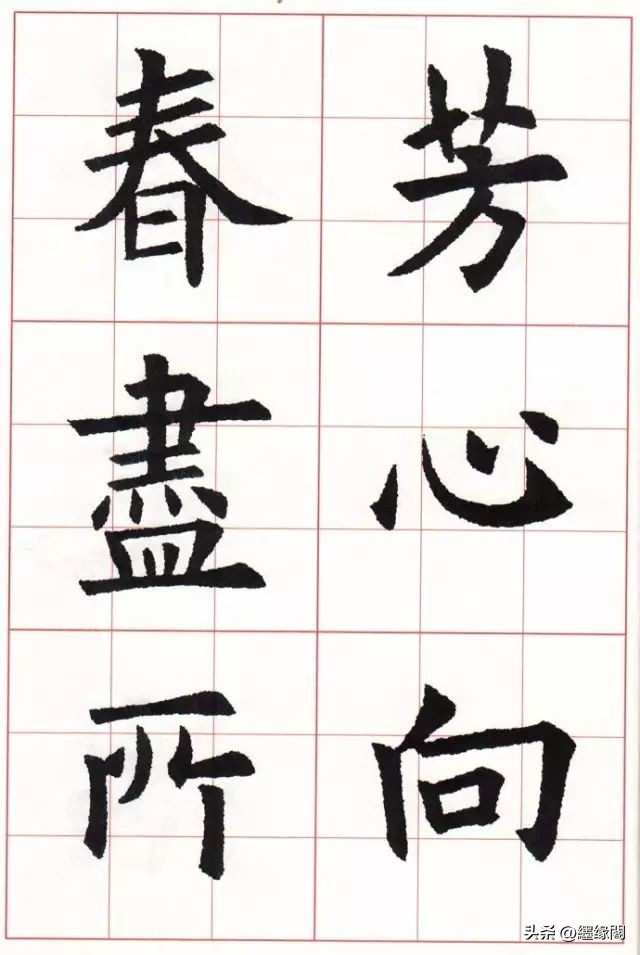 芳心向
春盡所
头条 @纒缘閣